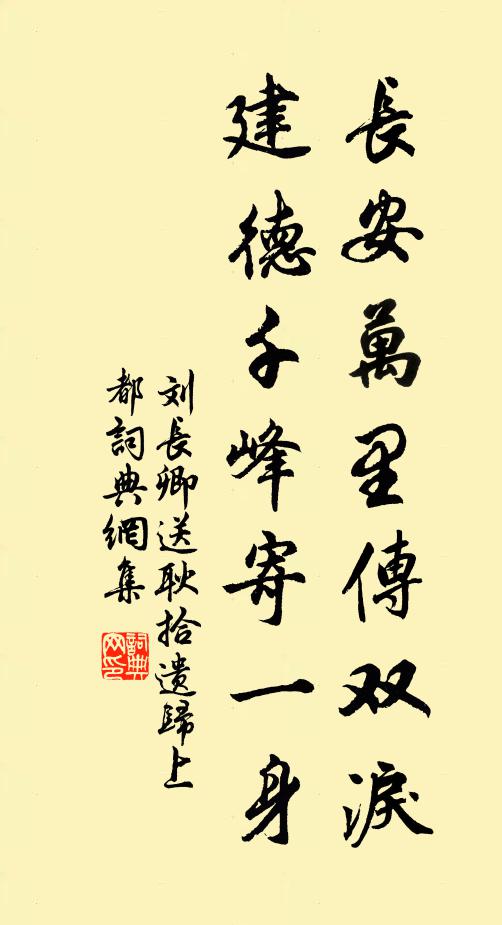 長安萬里傳双淚
建德千峰寄一身
刘長卿送耿拾遺歸上
都詞典網集
詞典
网印